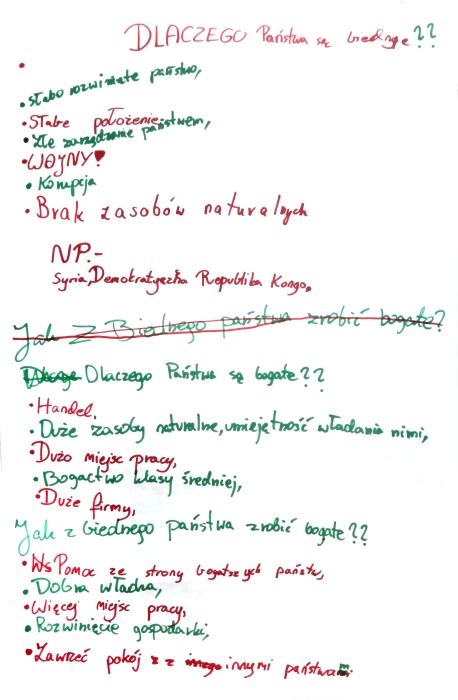 DLACZEGO Państwa są biednye??
• słabo rozwinięte państwo,
• Słabe położenie,
• złe zarządzanie państwem,
• WOJNY!
• Korupcja
• Brak zasobów naturalnych
NP.-
Syria, Demokratyczna Republika Kongo.
Jak z Biednego państwa zrobić bogate?
Dlaczego Państwa są bogate??
• Handel,
• Duże zasoby naturalne, umiejętność władania nimi,
• Dużo miejsc pracy,
• Bogactwo klasy średniej,
• Duże firmy,
Jak z biednego państwa zrobić bogate??
• WsPomoc ze strony bogatszych państw,
• Dobra władza,
• Więcej miejsc pracy,
• Rozwinięcie gospodarki,
• Zawrzeć pokój z z innymi państwami.